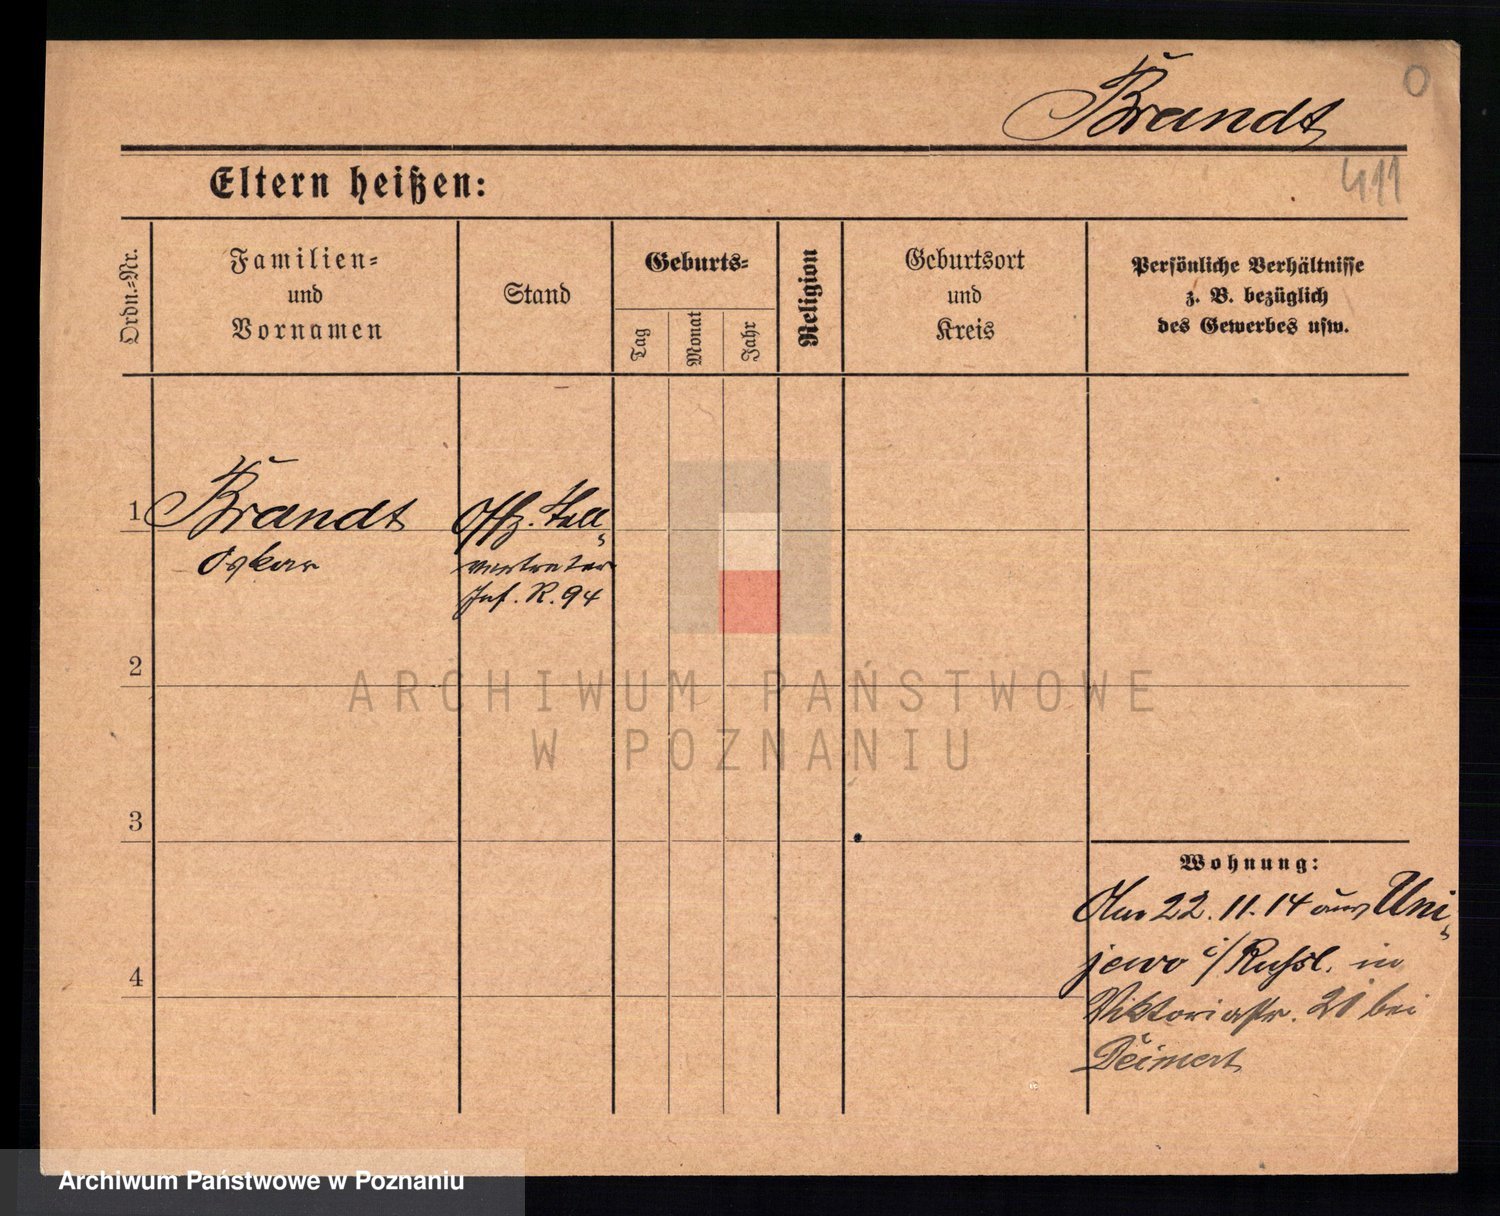 Brandt
0
411
Eltern heißen:
Ordn.-Nr.
Familien-
und
Vornamen
Stand
Geburts-
Tag
Monat
Jahr
Religion
Geburtsort
und
Kreis
Persönliche Verhältnisse
z. B. bezüglich
des Gewerbes usw.
1
Brandt
Oskar
Offz. Stell
vertreter
Inf. R. 94
2
ARCHIWUM PAŃSTWOWE
W POZNANIU
3
4
Wohnung:
Am 22. 11. 14 aus Uni-
jewo i/Russl. in
Viktoriastr. 21 bei
Archiwum Państwowe w Poznaniu